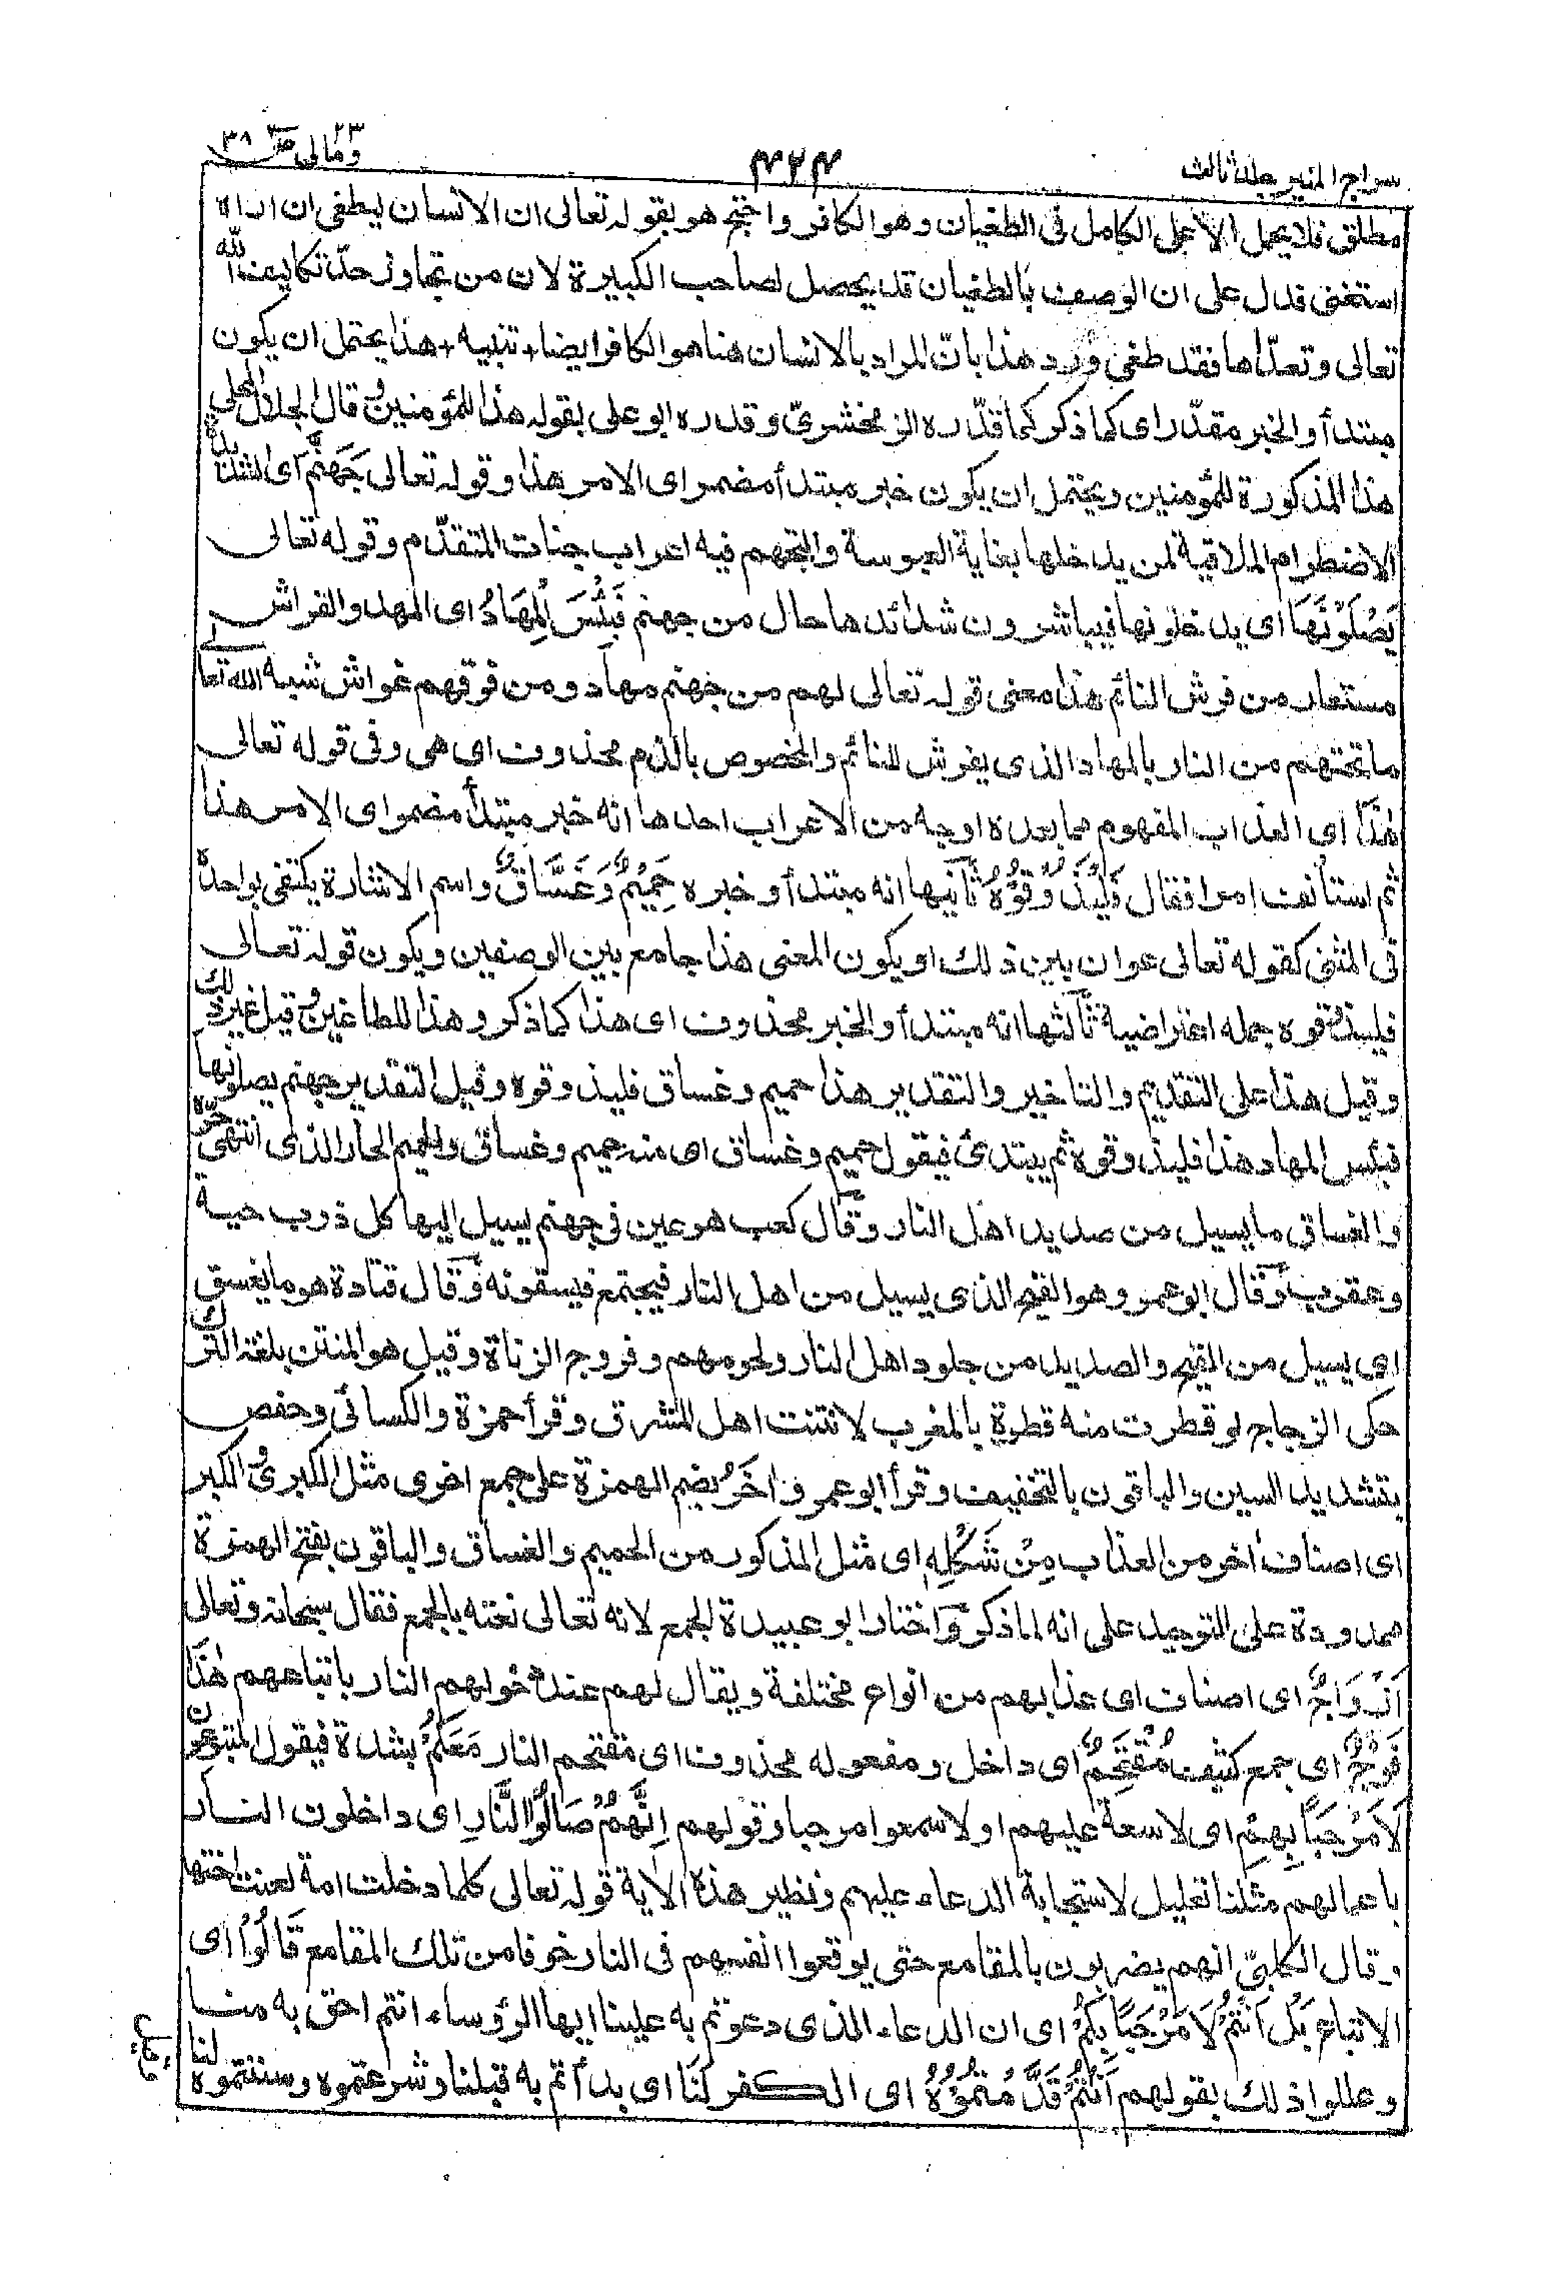 سراج المنير جلد ثالث
٤٢٤
ومالى ٢٣ صٓ ٣٨
مطلق فلا يحمل الا على الكامل فى الطغيان وهو الكافر واحتج هو بقوله تعالى ان الانسان ليطغى ان راٰه
استغنى فدل على ان الوصف بالطغيان قد يحصل لصاحب الكبيرة لان من تجاوز حدّ تكاليف الله
تعالى وتعدّاها فقد طغى ورد هذا بانّ المراد بالانسان هنا هو الكافر ايضا + تنبيه + هذا يحتمل ان يكون
مبتدأ والخبر مقدّر اى كما ذكر كما قدّره الزمخشرىّ وقدره ابو على بقوله هذا للمؤمنين وقال الجلال المحلى
هذا المذكورة للمؤمنين ويحتمل ان يكون خبر مبتدأ مضمر اى الامر هذا وقوله تعالى جَهَنَّمَ اى الشديدة
الاضطرام الملاقية لمن يدخلها بغاية العبوسة والتجهم فيه اعراب جنات المتقدّم وقوله تعالى
يَصْلَوْنَهَا اى يدخلونها فيباشرون شدائدها حال من جهنم فَبِئْسَ الْمِهَادُ اى المهد والفراش
مستعار من فرش النائم هذا معنى قوله تعالى لهم من جهنم مهاد ومن فوقهم غواش شبه الله تعالى
ما تحتهم من النار بالمهاد الذى يفرش للنائم والمخصوص بالذم محذوف اى هى وفى قوله تعالى
هٰذَا اى العذاب المفهوم مما بعده اوجه من الاعراب احدها انه خبر مبتدأ مضمر اى الامر هذا
ثم استأنف امرا فقال فَلْيَذُوقُوْهُ ثانيها انه مبتدأ وخبره حَمِيْمٌ وَّغَسَّاقٌ واسم الاشارة يكتفى بواحدة
فى المثنى كقوله تعالى عوان بين ذلك او يكون المعنى هذا جامع بين الوصفين ويكون قوله تعالى
فليذوقوه جمله اعتراضية ثالثها انه مبتدأ والخبر محذوف اى هذا كما ذكر وهذا للطاغين وقيل غير ذلك
وقيل هذا على التقديم والتاخير والتقدير هذا حميم وغساق فليذوقوه وقيل التقدير جهنم يصلونها
فبئس المهاد هذا فليذوقوه ثم يبتدئ فيقول حميم وغساق اى منه حميم وغساق والحميم الحار الذى انتهى حرّه
والغساق ما يسيل من صديد اهل النار وقال كعب هو عين فى جهنم يسيل اليها كل ذوب حية
وعقرب وقال ابو عمرو هو القيح الذى يسيل من اهل النار فيجتمع فيسقونه وقال قتادة هو ما يغسق
اى يسيل من القيح والصديد من جلود اهل النار ولحومهم وفروج الزناة وقيل هو المنتن بلغة الترك
حكى الزجاج لو قطرت منه قطرة بالمغرب لانتنت اهل المشرق وقرأ حمزة والكسائى وحفص
بتشديد السين والباقون بالتخفيف وقرأ ابو عمرو وَاُخَرُ بضم الهمزة على جمع اخرى مثل الكبرى والكبر
اى اصناف اخر من العذاب مِنْ شَكْلِهٖ اى مثل المذكور من الحميم والغساق والباقون بفتح الهمزة
ممدودة على التوحيد على انه لما ذكر واختار ابو عبيدة الجمع لانه تعالى نعته بالجمع فقال سبحانه وتعالى
اَزْوَاجٌ اى اصناف اى عذابهم من انواع مختلفة ويقال لهم عند دخولهم النار باتباعهم هٰذَا
فَوْجٌ اى جمع كثيف مُقْتَحِمٌ اى داخل ومفعوله محذوف اى مقتحم النار مَعَكُمْ بشدة فيقول المتبوعون
لَا مَرْحَبًا بِهِمْ اى لاسعة عليهم او لا سمعوا مرحبا وقولهم اِنَّهُمْ صَالُوا النَّارِ اى داخلون النار
باعمالهم مثلنا تعليل لاستجابة الدعاء عليهم ونظير هذه الاٰية قوله تعالى كلما دخلت امة لعنت اختها
وقال الكلبىّ انهم يضربون بالمقامع حتى يوقعوا انفسهم فى النار خوفا من تلك المقامع قَالُوْا اى
الاتباع بَلْ اَنْتُمْ لَا مَرْحَبًا بِكُمْ اى ان الدعاء الذى دعوتم به علينا ايها الرؤساء انتم احق به منا
وعللوا ذلك بقولهم اَنْتُمْ قَدَّمْتُمُوْهُ اى الكفر لَنَا اى بدأتم به قبلنا وشرعتموه وسننتموه لنا